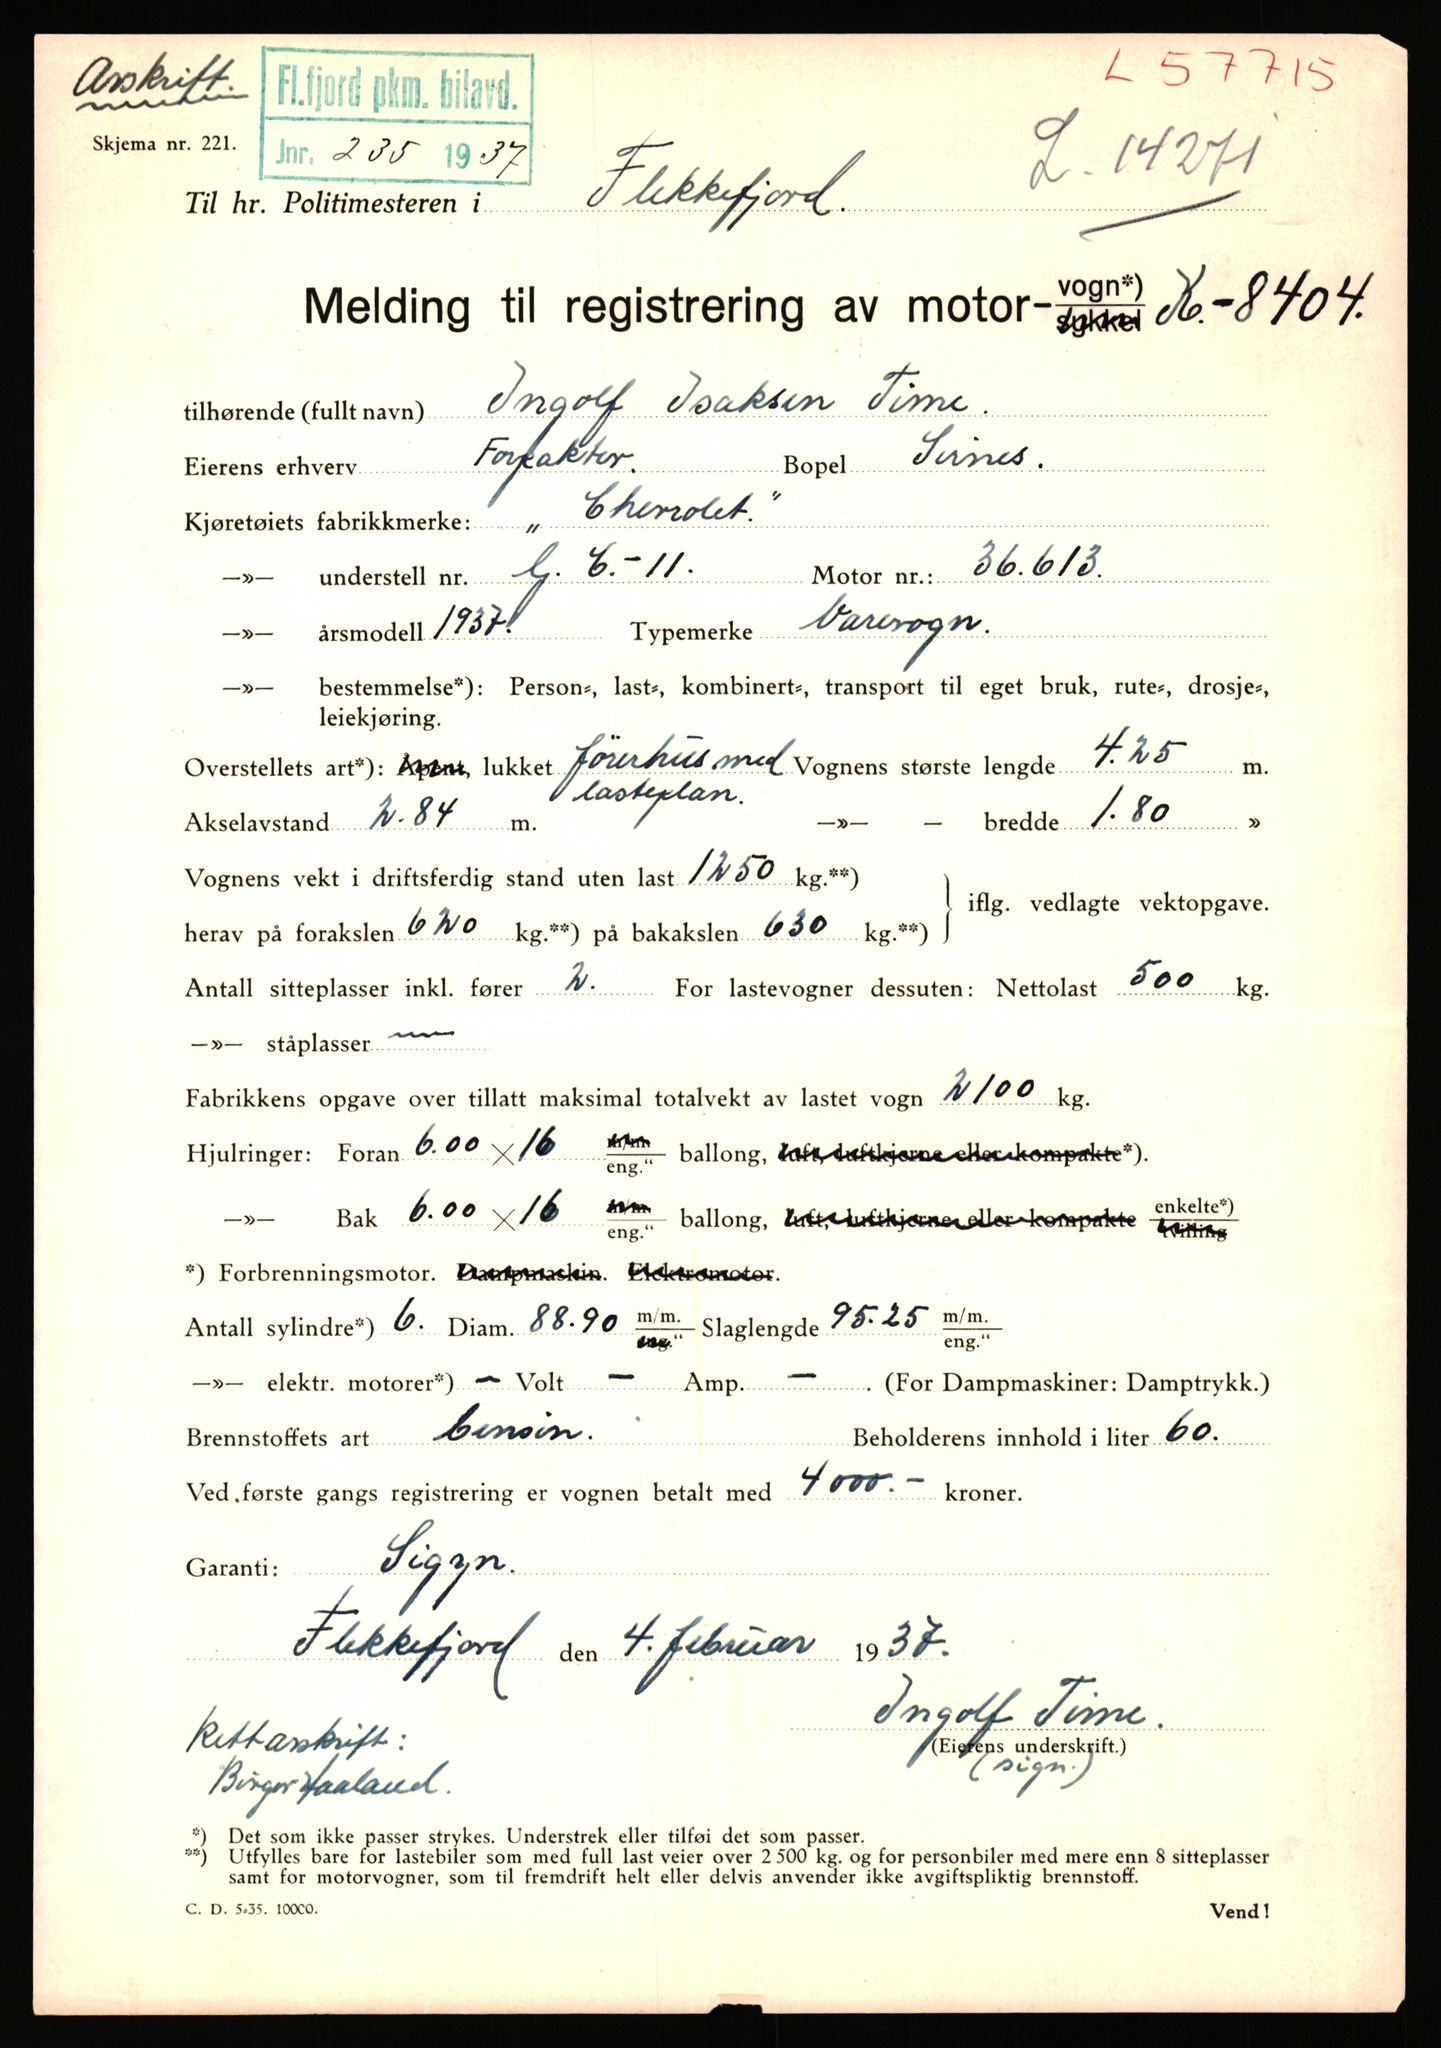 Avskrift.
Fl.fjord pkm. bilavd.
Jnr. 235 1937
L 57715
L. 14271
Skjema nr. 221.
Til hr. Politimesteren i Flekkefjord.
Melding til registrering av motor-vogn*) sykkel K.-8404.
tilhørende (fullt navn) Ingolf Isaksen Time.
Eierens erhverv Forpakter. Bopel Sirnes.
Kjøretøiets fabrikkmerke: „Chevrolet."
—»— understell nr. G. C.-11. Motor nr.: 36.613.
—»— årsmodell 1937. Typemerke Varevogn.
—»— bestemmelse*): Person-, last-, kombinert-, transport til eget bruk, rute-, drosje-,
leiekjøring.
Overstellets art*): Åpent, lukket förerhus med Vognens største lengde 4.25 m.
lasteplan.
Akselavstand 2.84 m. —»— — bredde 1.80 »
Vognens vekt i driftsferdig stand uten last 1250 kg.**)
iflg. vedlagte vektopgave.
herav på forakslen 620 kg.**) på bakakslen 630 kg.**)
Antall sitteplasser inkl. fører 2. For lastevogner dessuten: Nettolast 500 kg.
—»— ståplasser —
Fabrikkens opgave over tillatt maksimal totalvekt av lastet vogn 2100 kg.
Hjulringer: Foran 6.00 × 16 m/m eng.“ ballong, luft, luftkjerne eller kompakte*).
—»— Bak 6.00 × 16 m/m eng.“ ballong, luft, luftkjerne eller kompakte enkelte*) tvilling
*) Forbrenningsmotor. Dampmaskin. Elektromotor.
Antall sylindre*) 6. Diam. 88.90 m/m. eng.“ Slaglengde 95.25 m/m. eng.“
—»— elektr. motorer*) — Volt — Amp. — . (For Dampmaskiner: Damptrykk.)
Brennstoffets art bensin. Beholderens innhold i liter 60.
Ved første gangs registrering er vognen betalt med 4000.- kroner.
Garanti: Sigyn.
Flekkefjord den 4. februar 1937.
Ingolf Time.
(Eierens underskrift.)
(sign.)
Rett avskrift:
Birger Haaland.
*) Det som ikke passer strykes. Understrek eller tilføi det som passer.
**) Utfylles bare for lastebiler som med full last veier over 2 500 kg. og for personbiler med mere enn 8 sitteplasser
samt for motorvogner, som til fremdrift helt eller delvis anvender ikke avgiftspliktig brennstoff.
C. D. 5-35. 10000.
Vend!